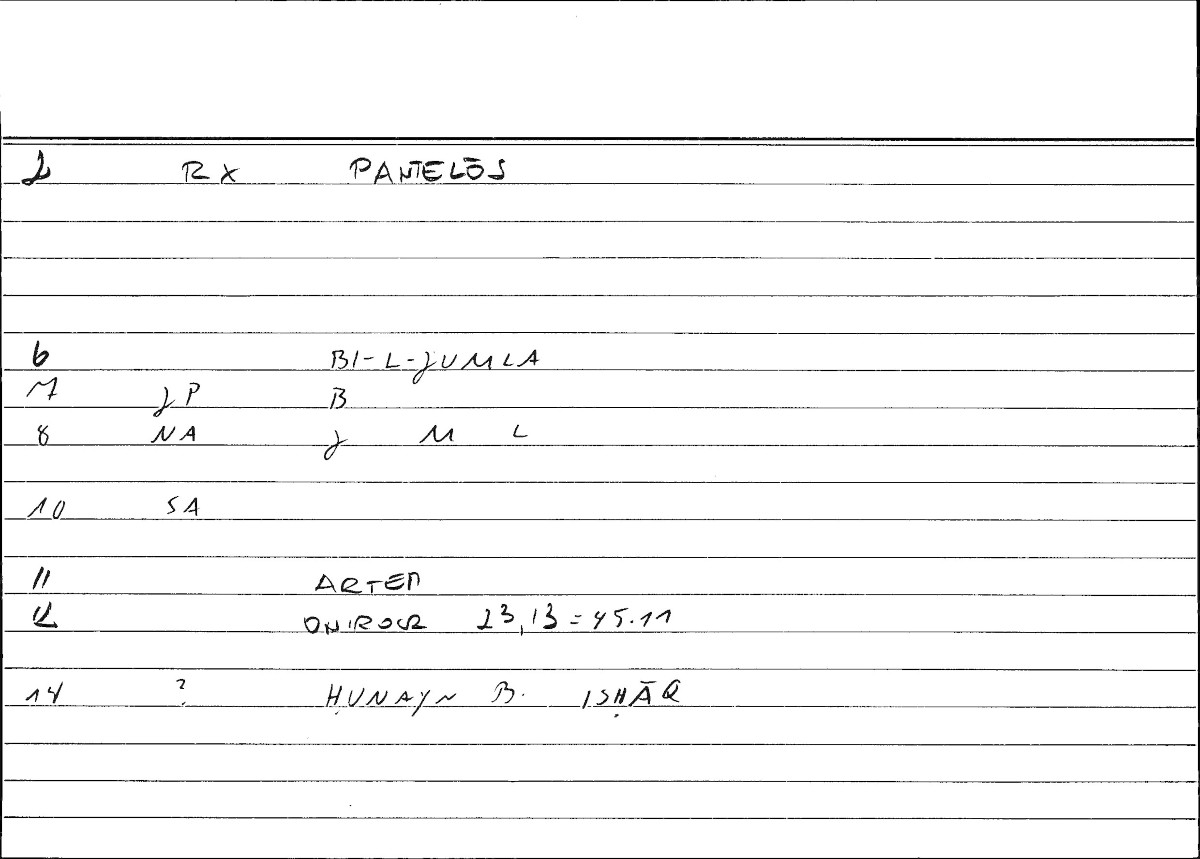 2 RX PANTELŌS
6 BI-L-JUMLA
7 JP B
8 NA J M L
10 SA
11 ARTEM
12 ONIROCR 23,13=45.11
14 ? ḤUNAYN B. ISḤĀQ